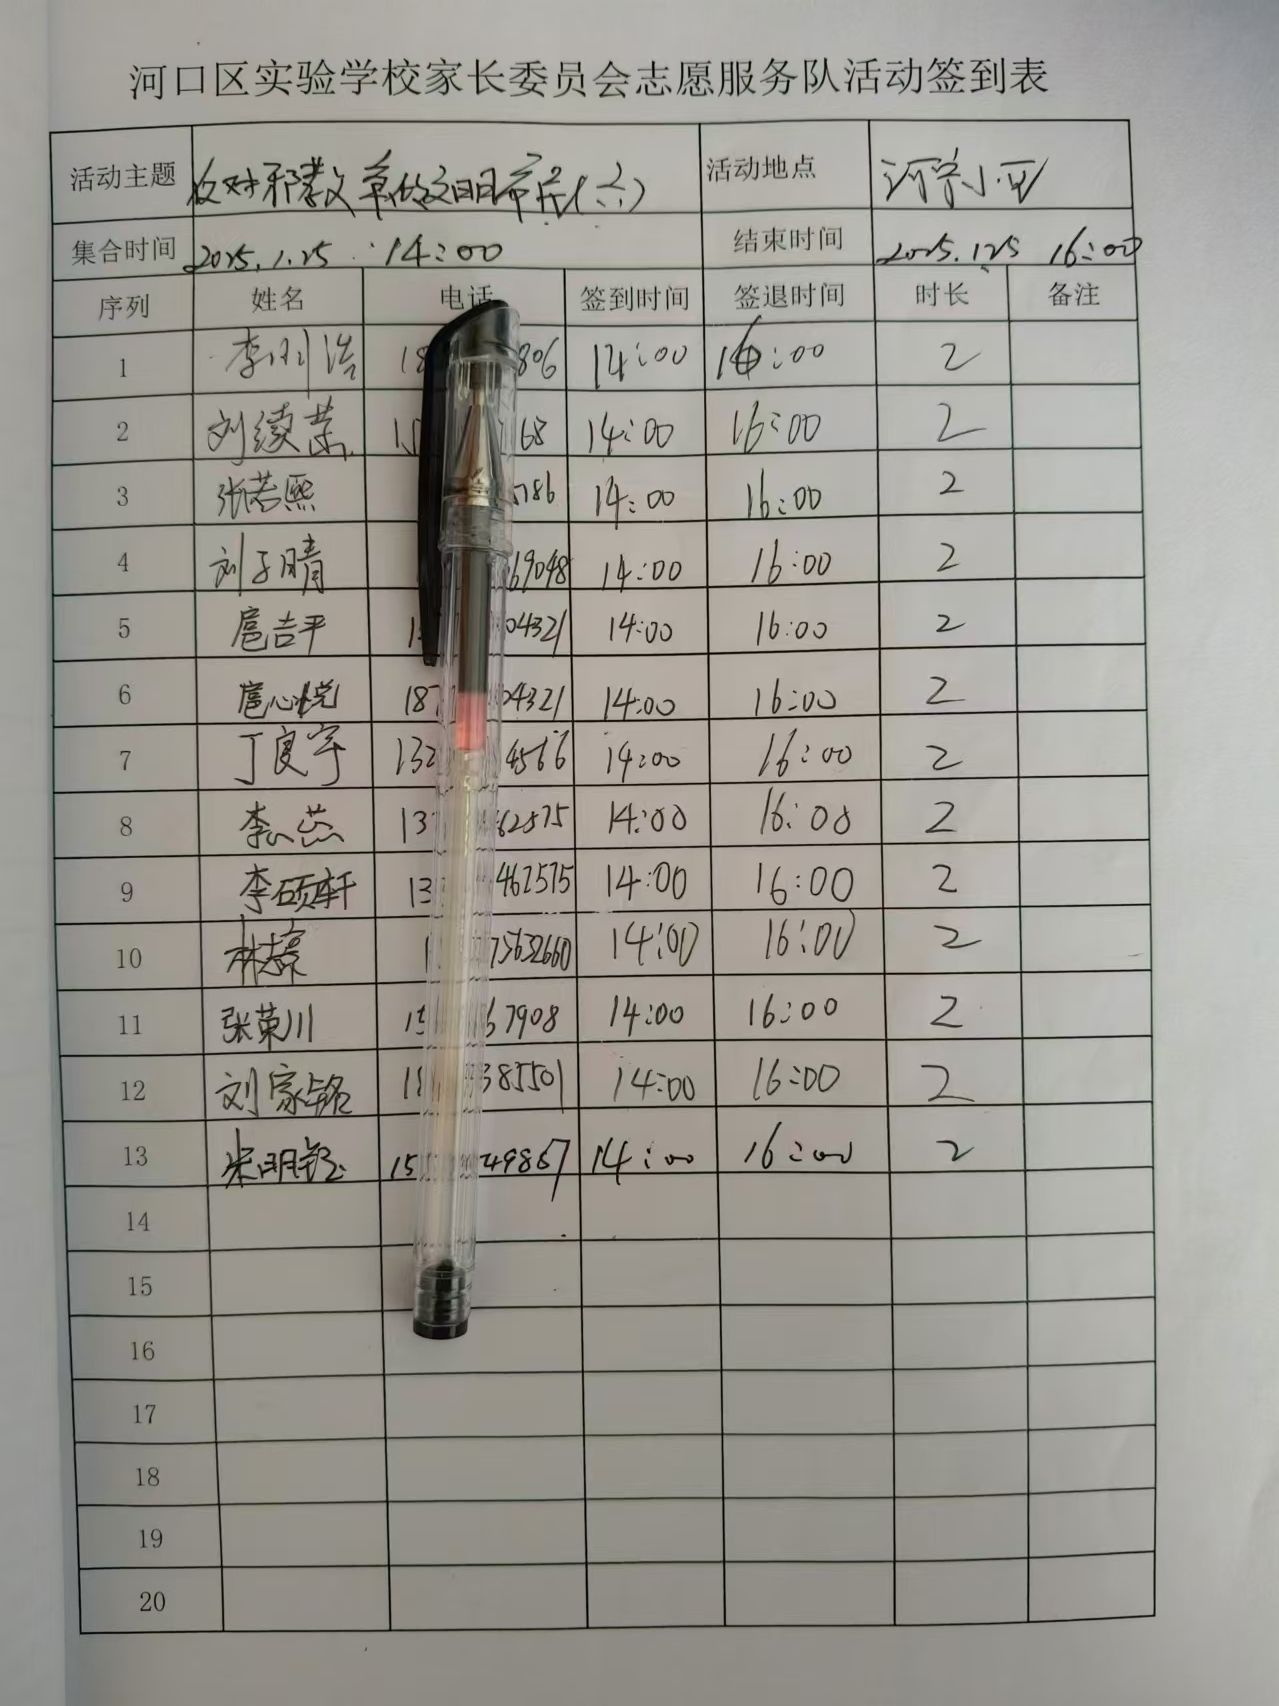 河口区实验学校家长委员会志愿服务队活动签到表
活动主题 反对邪教 争做文明市民(六) 活动地点 河宁小区
集合时间 2025.1.25 14:00 结束时间 2025.1.25 16:00
序列 姓名 电话 签到时间 签退时间 时长 备注
1 李 浩 18 806 14:00 16:00 2
2 刘续荣 1 68 14:00 16:00 2
3 张若熙 5786 14:00 16:00 2
4 刘子晴 69048 14:00 16:00 2
5 扈吉平 1 04321 14:00 16:00 2
6 扈心悦 187 04321 14:00 16:00 2
7 丁良宇 132 4566 14:00 16:00 2
8 李 13 62575 14:00 16:00 2
9 李硕轩 13 462575 14:00 16:00 2
10 林 1 75632660 14:00 16:00 2
11 张荣川 15 67908 14:00 16:00 2
12 刘家铭 1 385501 14:00 16:00 2
13 宋明钰 15 49867 14:00 16:00 2
14
15
16
17
18
19
20